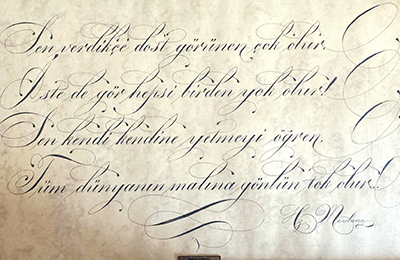 Sen verdikçe dost görünen çok olur.
İste de gör hepsi birden yok olur!
Sen kendi kendine yetmeyi öğren.
Tüm dünyanın malına gönlün tok olur.!
Hz. Mevlana